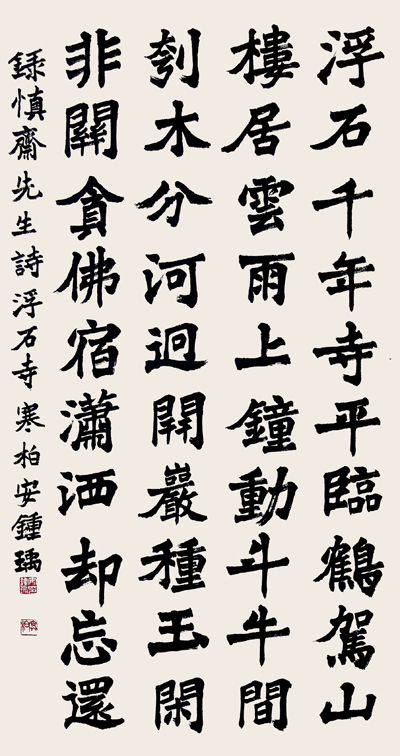 浮石千年寺平臨鶴駕山
樓居雲雨上鐘動斗牛間
刳木分河迥開巖種玉閑
非關貪佛宿瀟洒却忘還
録慎齋先生詩浮石寺寒柏安鍾瑀